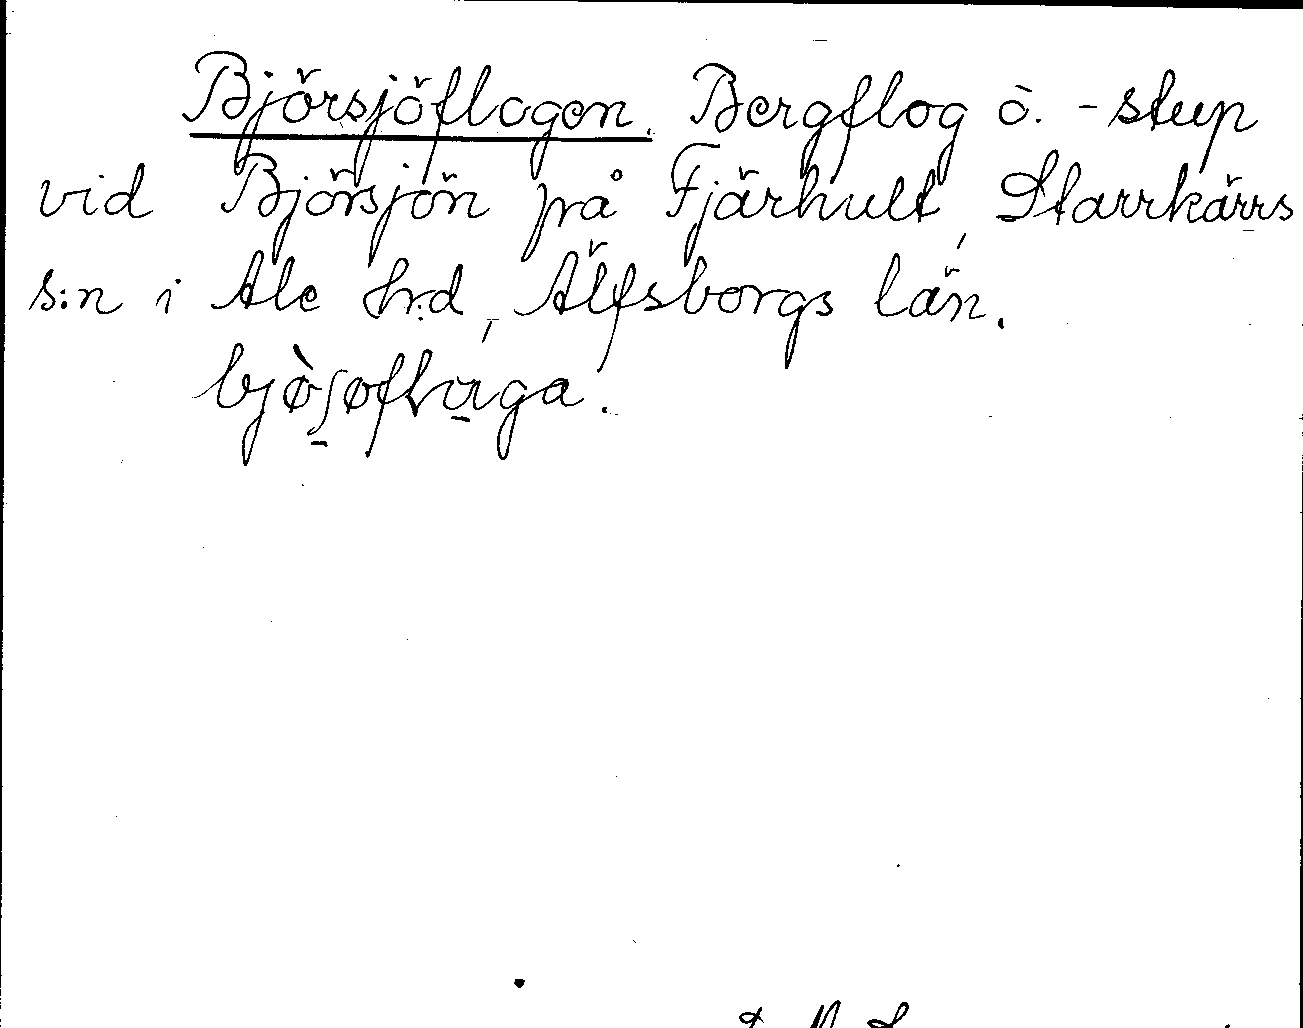 Björsjöflogen. Bergflog o. -stup
vid Björsjön på Fjärhult, Starrkärrs
s:n i Ale hrd, Älfsborgs län.